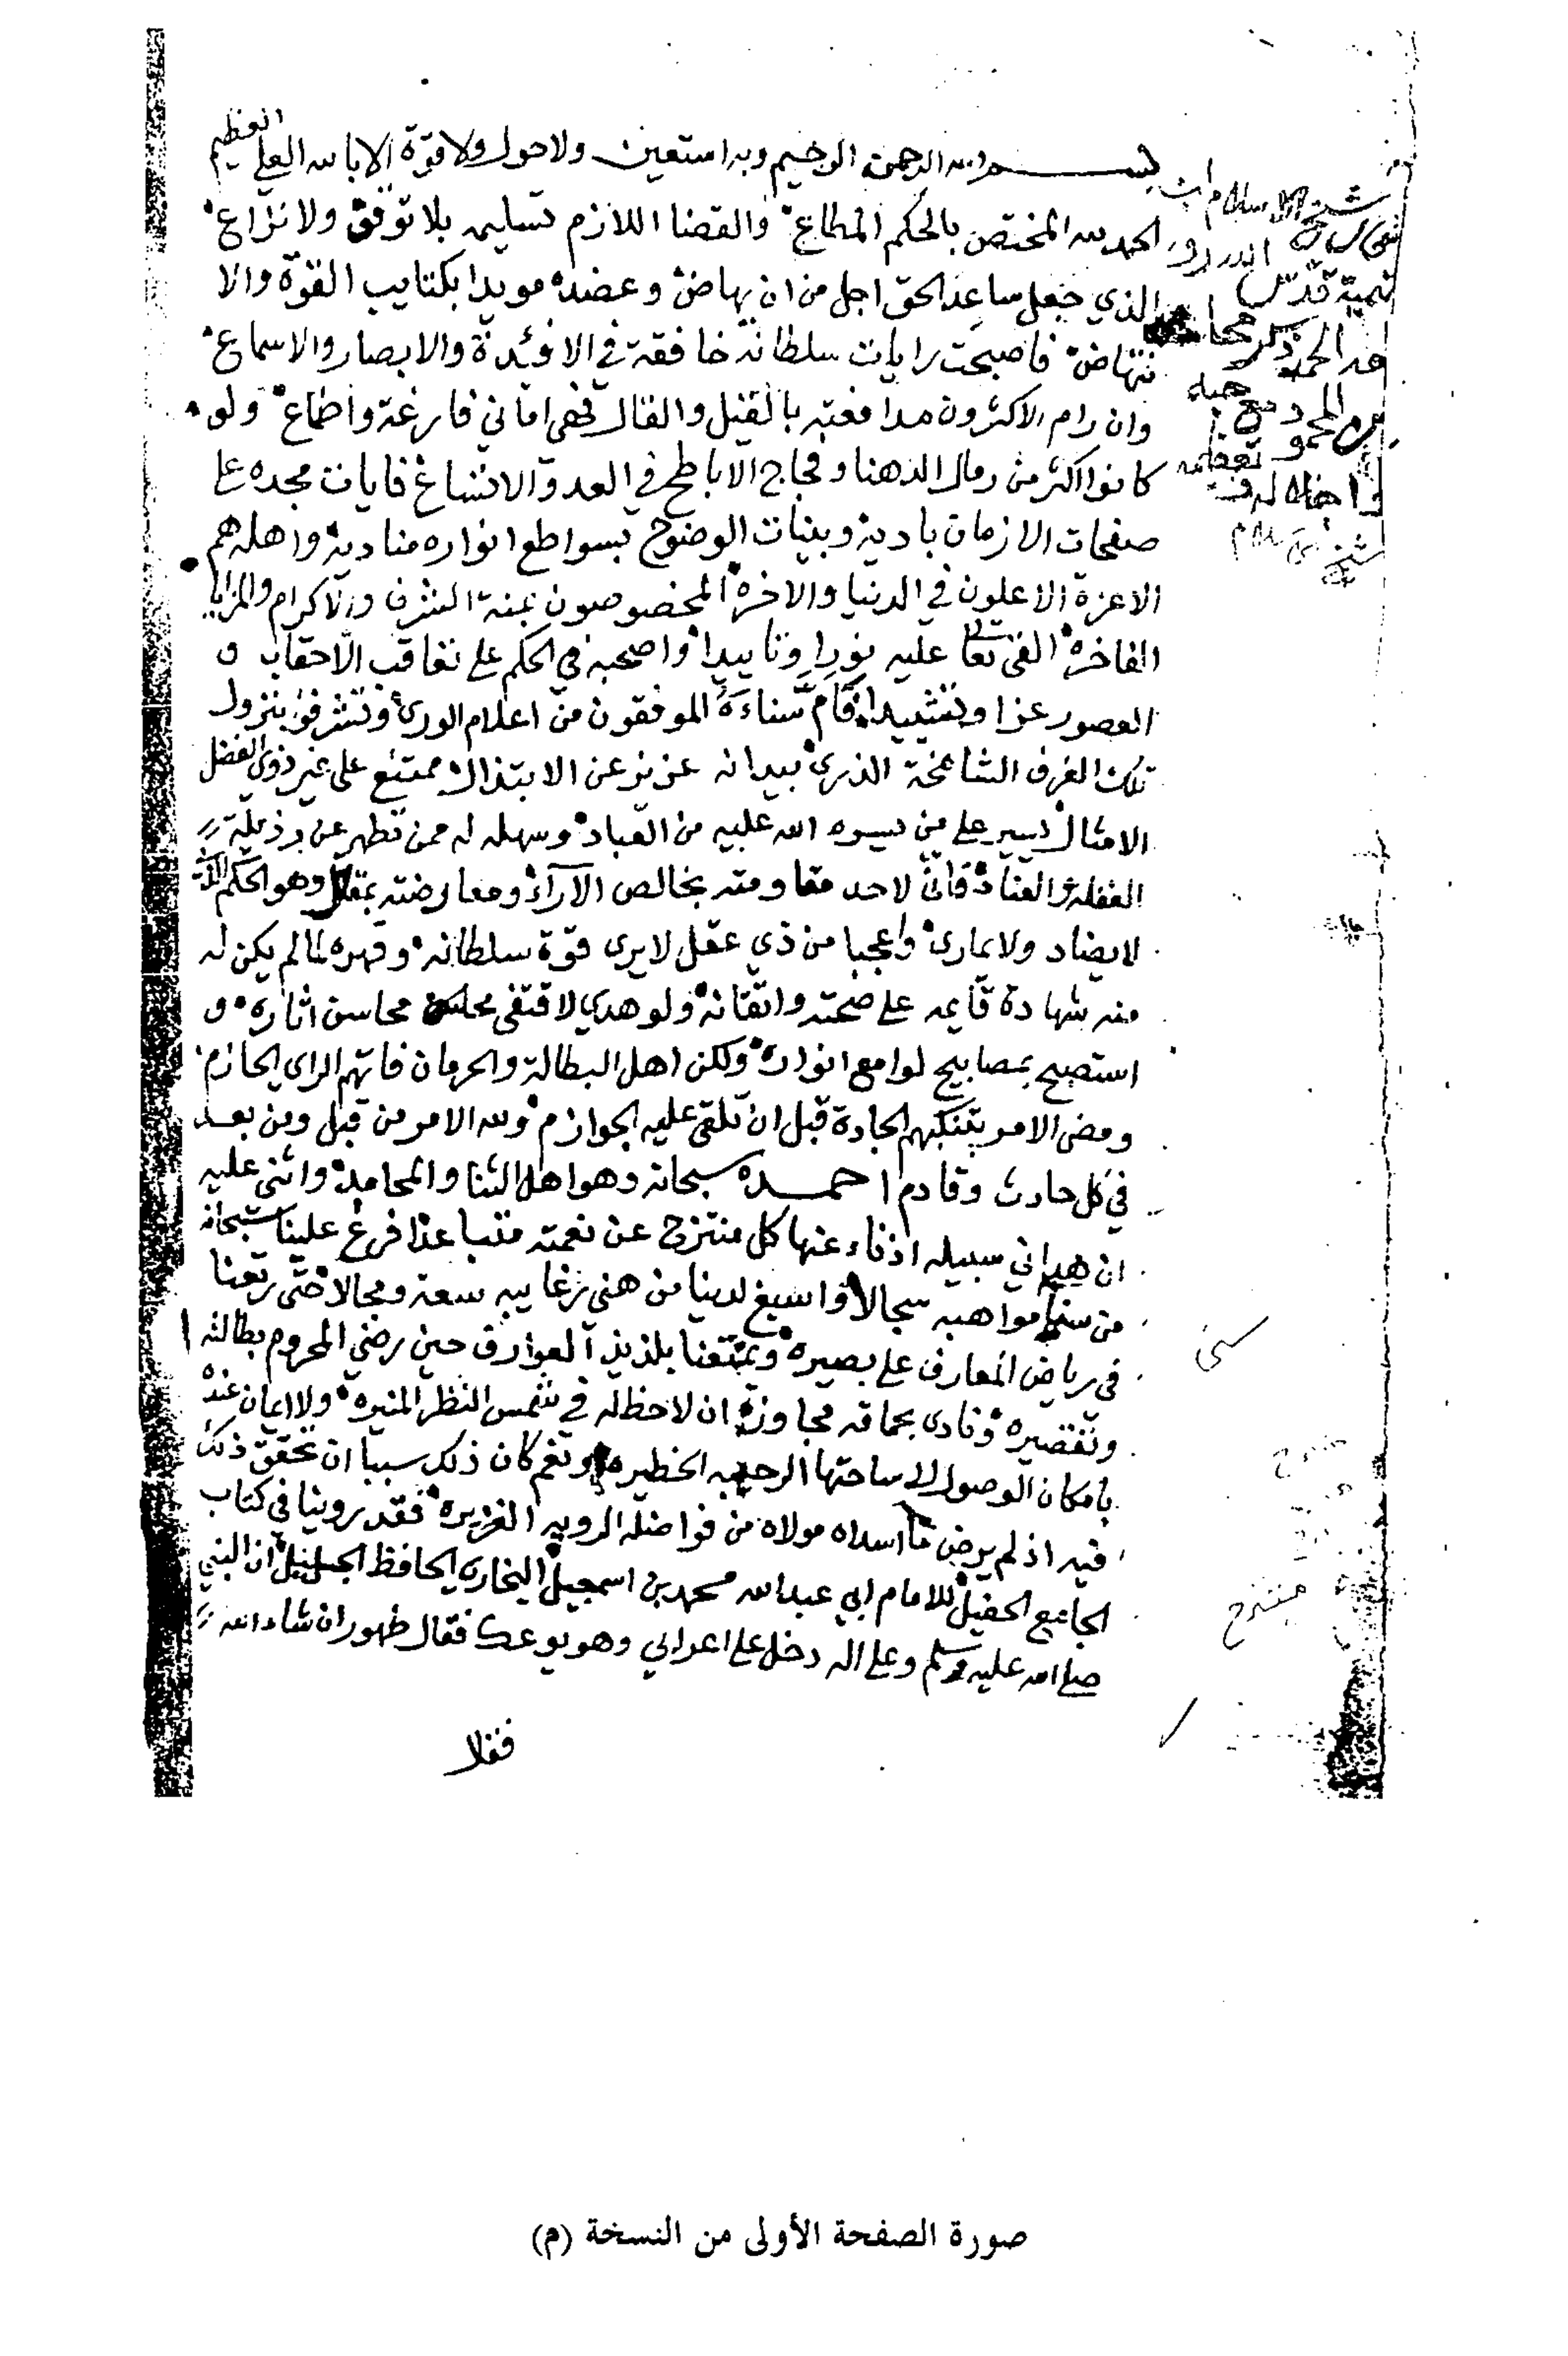 بسم الله الرحمن الرحيم وبه استعين ولا حول ولا قوة الا بالله العلي العظيم
الحمد لله المختص بالحكم المطاع والقضا اللازم تسليمه بلا توقف ولا نزاع
الذي جعل ساعد الحق اجل من ان يهاض وعضده مويدا بكتايب القوة والا
نتهاض فاصبحت رايات سلطانه خافقة في الافئدة والابصار والاسماع
وان رام الاكثرون مدافعته بالقيل والقال فهي اماني فارغة واطماع ولو
كانوا اكثر من رمال الدهنا وفجاج الاباطح في العد والاتساع فايات مجده على
صفحات الازمان بادية وبينات الوضوح بسواطع انواره منادية واهله هم
الاعزة الاعلون في الدنيا والاخرة المخصوصون بمنة الشرف والاكرام والمزايا
الفاخرة القى تعالى عليه نورا وتاييدا واصحبه في الحكم على تعاقب الاحقاب و
العصور عزا وتشييدا فام سناءه الموفقون من اعلام الورى وتشرفوا بنزول
تلك الغرف الشامخة الذرى بيد انه عزيز عن الابتذال ممتنع على غير ذوي الفضل
الامثال يسير على من يسره الله عليه من العباد وسهله له ممن تطهر عن رذيلة
الغفلة والعناد فانى لاحد مقاومته بخالص الآراء ومعارضته وهو الحكم
لا يضاد ولا يمارى واعجبا من ذي عقل لا يرى قوة سلطانه وقهره لما لم يكن له
منه شهادة قايمه على صحته واتقانه ولو هدي لاقتفى محاسن اثاره و
استصبح بمصابيح لوامع انواره ولكن اهل البطالة والحرمان فاتهم الراى الحازم
ومضى الامر بتنكبهم الجادة قبل ان تلقى عليه الجوازم ولله الامر من قبل ومن بعد
في كل حادث وقادم احمده سبحانه وهو اهل الثنا والمحامد واثني عليه
ان هداني سبيله اذ ناء عنها كل منتزح عن نعمته متباعد افرغ علينا سبحانه
من سني مواهبه سجالا واسبغ لدينا من هني رغايبه سعة ومجالا حتى رتعنا
في رياض المعارف على بصيره وتمتعنا بلذيذ العوارف حين رضي المحروم بطالته
وتقصيره ونادى بحماقه مجاوزة ان لا حظ له في شمس النظر المنيره ولا ايمان عنده
بامكان الوصول الى ساحتها الرحيبه الخطيره ونعم كان ذلك سببا ان تحقق ذلك
فيه اذ لم يرض ما اسداه مولاه من فواضله الرويه الغزيره فقد روينا في كتاب
الجامع الحفيل للامام ابي عبد الله محمد بن اسمعيل البخاري الحافظ الجليل ان النبي
صلى الله عليه وسلم وعلى اله دخل على اعرابي وهو يوعك فقال طهور ان شاء الله
فقلا
شيخ الاسلام ابن
تيمية قدس
الحمد ذكر محاسن
المحمود مع حبه
وتعظيمه
واجلاله
شيخ الاسلام
سني
منتزح
صورة الصفحة الأولى من النسخة (م)